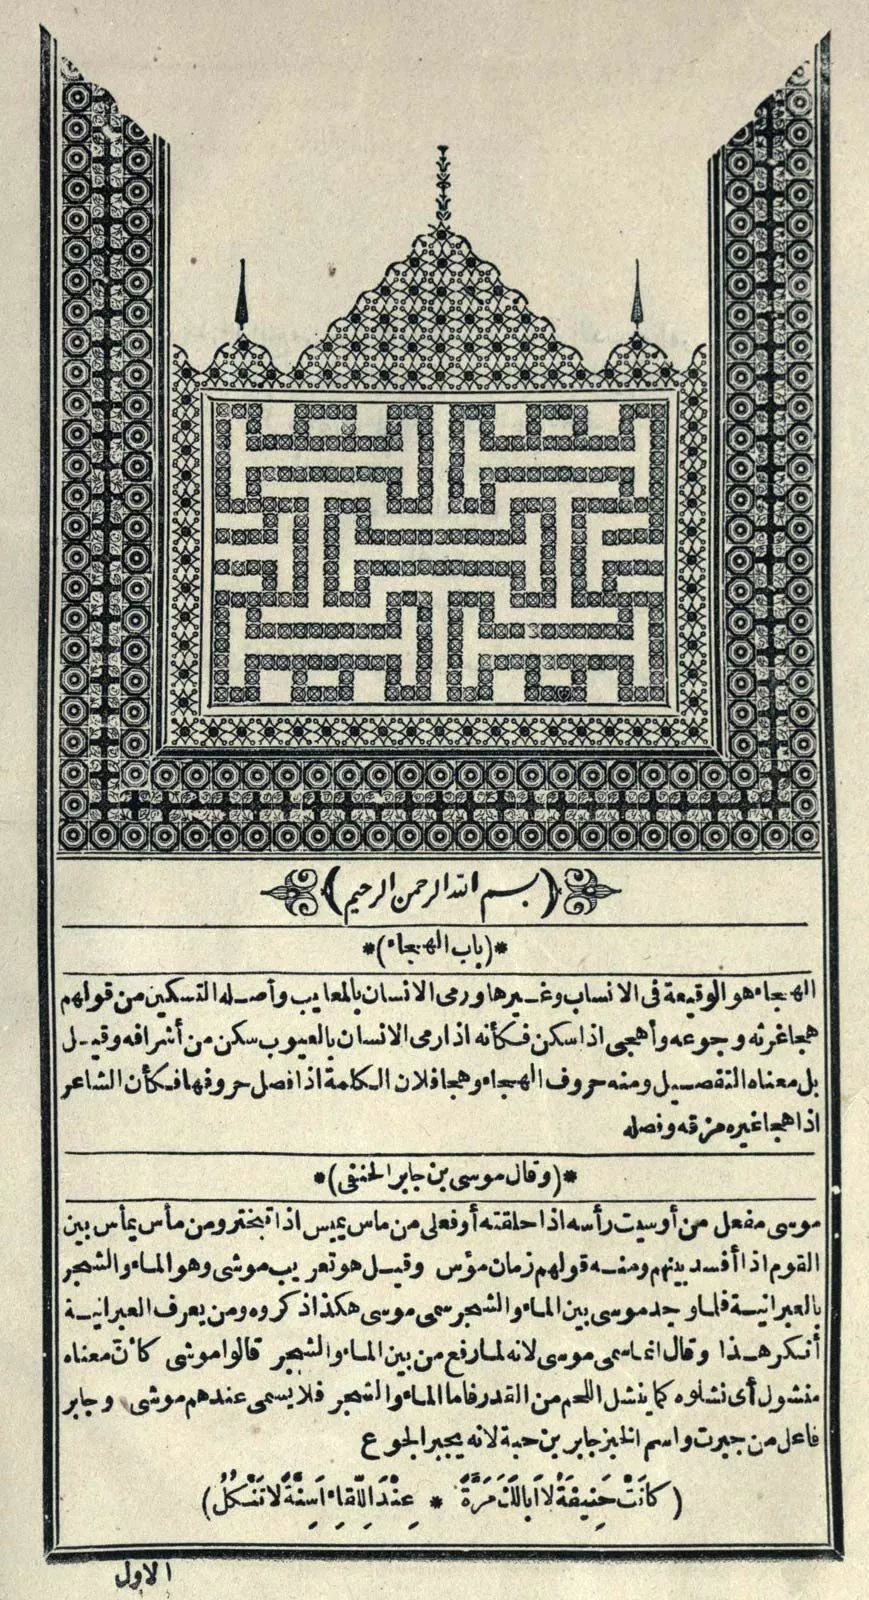 (بسم الله الرحمن الرحيم)
*(باب الهجاء)*
الهجاء هو الوقيعة في الانساب وغيرها ورمى الانسان بالمعايب وأصله التسكين من قولهم
هجا غرثه وجوعه وأهجى اذا سكن فكأنه اذا رمى الانسان بالعيوب سكن من أشرافه وقيل
بل معناه التفصيل ومنه حروف الهجاء وهجا فلان الكلمة اذا فصل حروفها فكأن الشاعر
اذا هجا غيره مزقه وفصله
*(وقال موسى بن جابر الحنفى)*
موسى مفعل من أوسيت رأسه اذا حلقته أو فعلى من ماس يميس اذا تبختر ومن مأس يمأس بين
القوم اذا أفسد بينهم ومنه قولهم زمان مؤس وقيل هو تعريب موشى وهو الماء والشجر
بالعبرانية فلما وجد موسى بين الماء والشجر سمى موسى هكذا ذكروه ومن يعرف العبرانية
أنكر هذا وقال انما سمى موسى لانه لما رفع من بين الماء والشجر قالوا موشى كأنّ معناه
منشول أى نشلوه كما ينشل اللحم من القدر فاما الماء والشجر فلا يسمى عندهم موشى وجابر
فاعل من جبرت واسم الخبز جابر بن حبة لانه يجبر الجوع
(كَانَتْ حَنِيفَةُ لَا اَبَالَكَ مَرَّةً * عِنْدَ اللِّقَاءِ اَسِنَّةً لَا تَنْكُلُ)
الاول